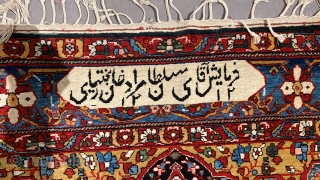 فرمایش آقای سلطان مراد خان بختیاری